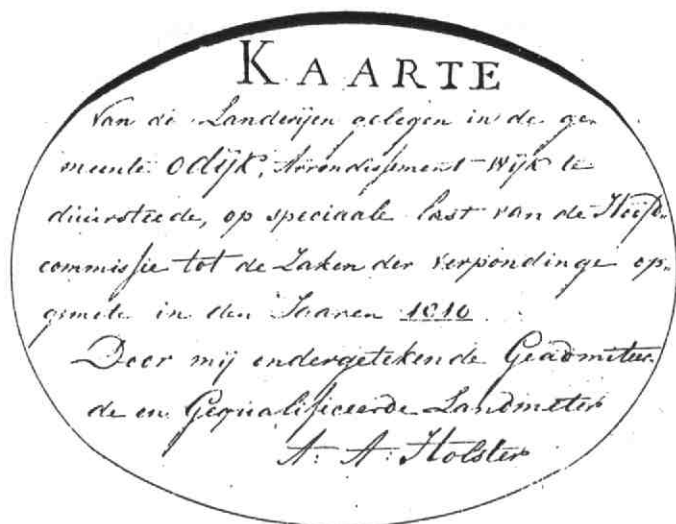 KAARTE
Van de Landerijen gelegen in de ge-
meente Odijk, Arrondissement Wijk te
duurstede, op speciaale last van de Hoofd-
commissie tot de Zaken der verpondinge op-
gemete in den Jaaren 1810
Door mij ondergetekende Geadmitteer-
de en Gequalificeerde Landmeter
A: A: Holster